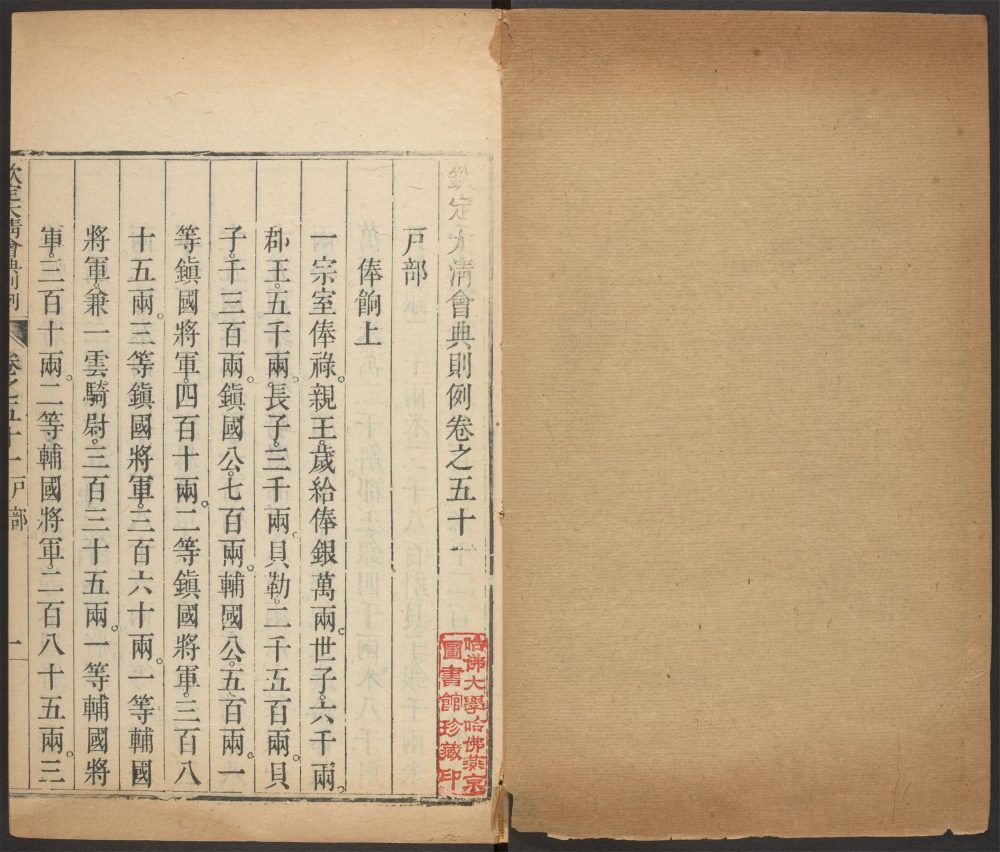 欽定大清會典則例卷之五十一
戸部
俸餉上
一宗室俸祿。親王。歲給俸銀萬兩。世子。六千兩。
郡王。五千兩。長子。三千兩。貝勒。二千五百兩。貝
子。千三百兩。鎭國公。七百兩。輔國公。五百兩。一
等鎭國將軍。四百十兩。二等鎭國將軍。三百八
十五兩。三等鎭國將軍。三百六十兩。一等輔國
將軍。兼一雲騎尉。三百三十五兩。一等輔國將
軍。三百十兩。二等輔國將軍。二百八十五兩。三
欽定大清會典則例 卷之五十一 戸部 一
哈佛大學哈佛燕京
圖書館珍藏印